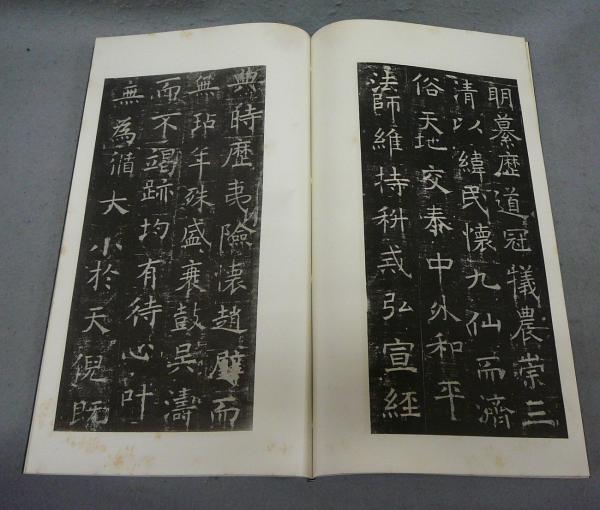 明纂歷道冠犧農崇三
清以緯民懷九仙而濟
俗天地交泰中外和平
法師維持科戒弘宣經
典時歷夷險懷趙璧而
無玷年殊盛衰鼓吳濤
而不竭跡均有待心叶
無為循大小於天倪既